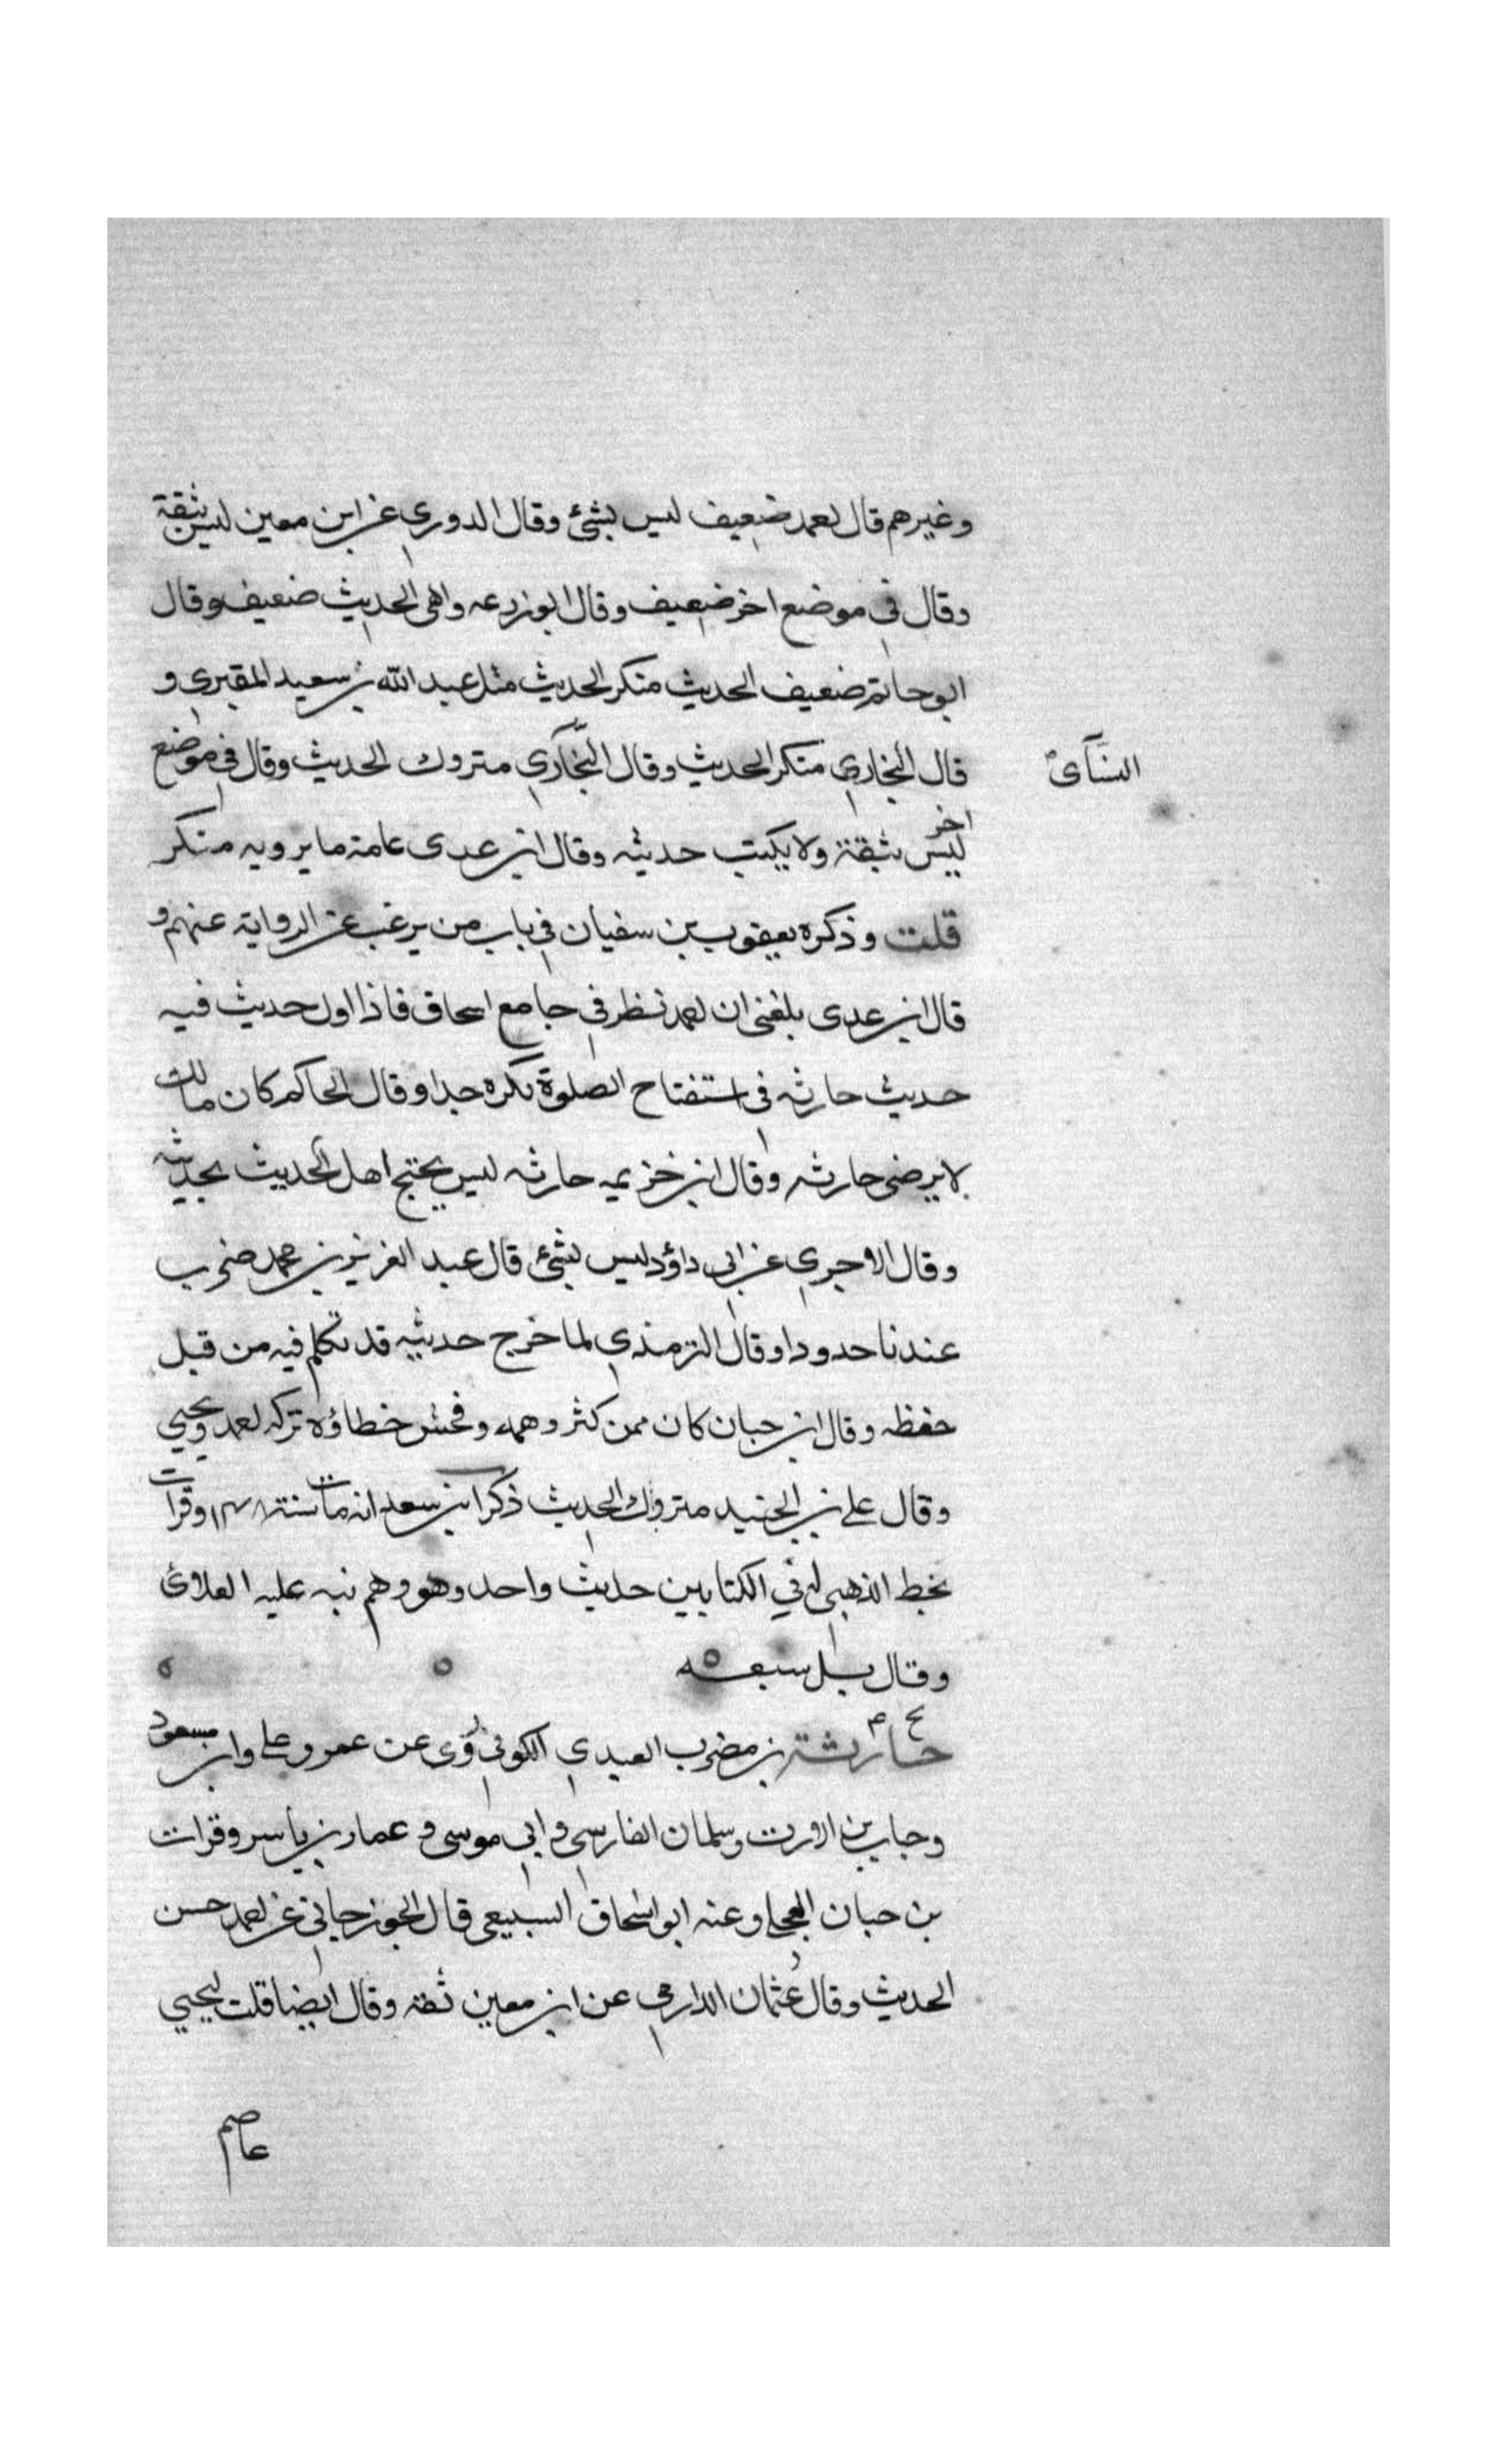 وغيرهم قال احمد ضعيف ليس بشئ وقال الدوري عن ابن معين ليس بثقة
وقال في موضع اخر ضعيف وقال ابو زرعه واهي الحديث ضعيف وقال
ابو حاتم ضعيف الحديث منكر الحديث مثل عبد الله بن سعيد المقبري و
قال البخاري منكر الحديث وقال البخاري متروك الحديث وقال في موضع
النسآئ
اخر
ليس بثقة ولا يكتب حديثه وقال ابن عدى عامة ما يرويه منكر
قلت وذكره يعقوب بن سفيان في باب من يرغب عن الرواية عنهم و
قال ابن عدى بلغنى ان احمد نظر في جامع اسحاق فاذا اول حديث فيه
حديث حارثه في استفتاح الصلوة نكره جدا وقال الحاكم كان مالك
لا يرضى حارثه وقال ابن خزيمه حارثه ليس يحتج اهل الحديث بحديثه
وقال الاجري عن ابي داؤد ليس بشئ قال عبد العزيز بن محمد ضرب
عندنا حدودا وقال الترمذي لما خرج حديثه قد تكلم فيه من قبل
حفظه وقال ابن حبان كان ممن كثر وهمه وفحش خطاؤه تركه احمد ويحيي
وقال علي بن الجنيد متروك الحديث ذكر ابن سعد انه مات سنة ١٤٨ وقرات
بخط الذهبي له في الكتابين حديث واحد وهو وهم نبه عليه العلائ
وقال بل سبعه
ع م
حارثة بن مضرب العبدي الكوفي روى عن عمر وعلي وابن مسعود
وخباب بن الارت وسلمان الفارسي و ابي موسى و عمار بن ياسر وفرات
بن حبان العجلي وعنه ابو اسحاق السبيعي قال الجوزجاني عن احمد حسن
الحديث وقال عثمان الدارمي عن ابن معين ثقة وقال ايضا قلت ليحيي
عاصم